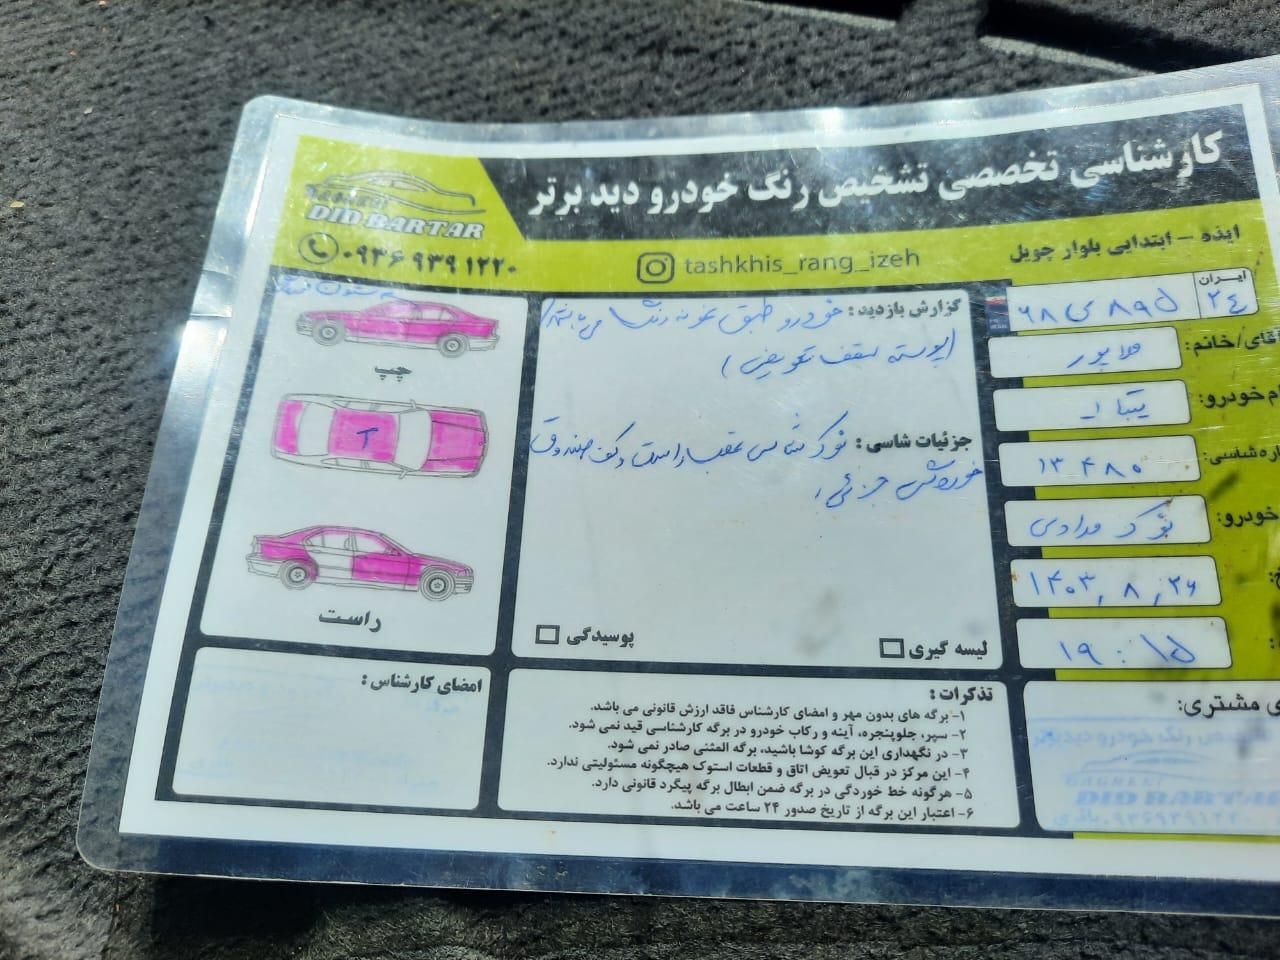 کارشناسی تخصصی تشخیص رنگ خودرو دید برتر
DID BARTAR
۰۹۳۶ ۹۳۹ ۱۲۲۰
tashkhis_rang_izeh
ایذه - ابتدایی بلوار چویل
ایران
۲۴
۶۸ ی ۸۹۵
آقای/خانم:
م خودرو: تیبا ۱
اره شاسی: ۱۳۴۸۰
خودرو: نوک مدادی
۱۴۰۳, ۸, ۲۶
۱۹ : ۱۵
گزارش بازدید: خودرو طبق نمونه رنگ می باشد
(پوسته سقف تعویض)
جزئیات شاسی: نوک شاسی عقب راست و کف صندوق
خوردگی جزئی
لیسه گیری
پوسیدگی
چپ
T
راست
امضای کارشناس:
تذکرات:
۱- برگه های بدون مهر و امضای کارشناس فاقد ارزش قانونی می باشد.
۲- سپر، جلوپنجره، آینه و رکاب خودرو در برگه کارشناسی قید نمی شود.
۳- در نگهداری این برگه کوشا باشید، برگه المثنی صادر نمی شود.
۴- این مرکز در قبال تعویض اتاق و قطعات استوک هیچگونه مسئولیتی ندارد.
۵- هرگونه خط خوردگی در برگه ضمن ابطال برگه پیگرد قانونی دارد.
۶- اعتبار این برگه از تاریخ صدور ۲۴ ساعت می باشد.
ی مشتری:
تشخیص رنگ خودرو دید برتر
DID BARTAR
۰۹۳۶۹۳۹۱۲۲۰